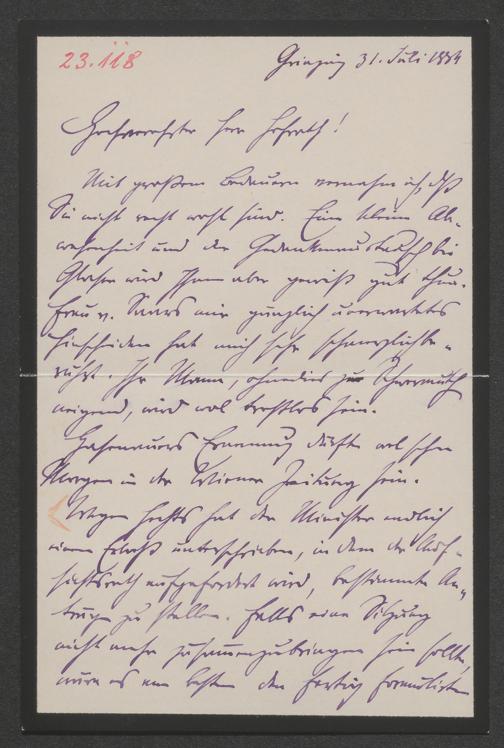 23.118
Grinzing 31. Juli 1884
Hochverehrter Herr Hofrath!
Mit großem Bedauern vernahm ich, dß
Sie nicht recht wohl sind. Eine kleine Ab-
wesenheit und der Gedankenaustausch bei
Glaser wird Ihnen aber gewiß gut thun.
Frau v. Saars mir gänzlich unerwartetes
Hinscheiden hat mich sehr schmerzlich be-
rührt. Ihr Mann, ohnedies zur Schwermuth
neigend, wird wol trostlos sein.
Hasenauers Ernennung dürfte wol schon
Morgen in der Wiener Zeitung sein.
Wegen hat der Minister endlich
einen Erlaß unterschrieben, in dem der Auf-
sichtsrath aufgefordert wird, bestimmte An-
träge zu stellen. Falls eine Sitzung
nicht mehr zusammenzubringen sein sollte,
wäre es am besten den fertig formulirten